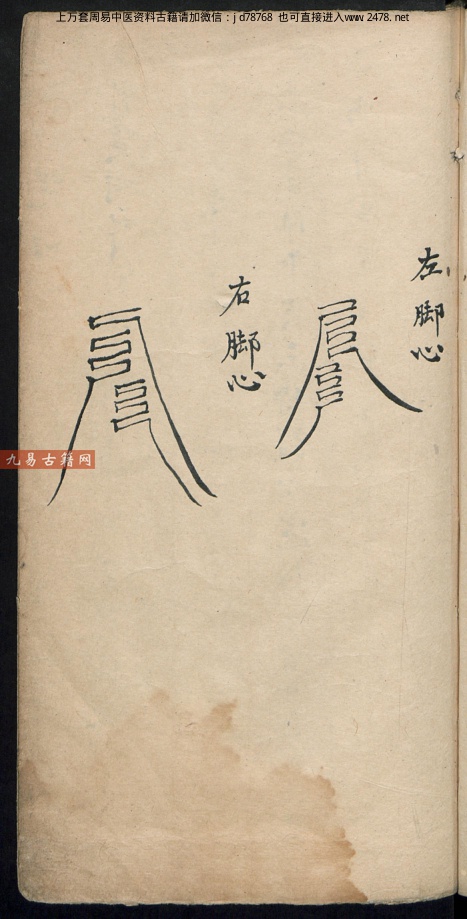 上万套周易中医资料古籍请加微信：jd78768 也可直接进入www.2478.net
左脚心
右脚心
九易古籍网